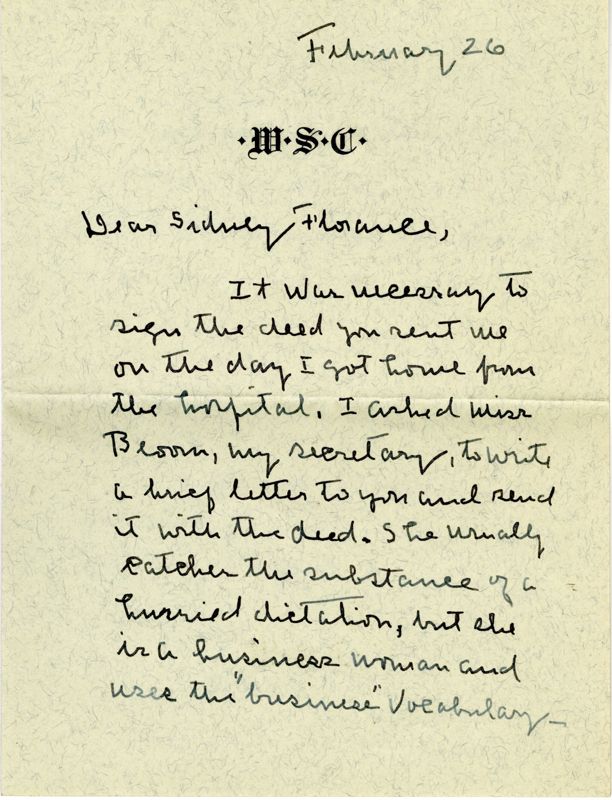 February 26
·W·S·C·
Dear Sidney Florance,
It was necessary to
sign the deed you sent me
on the day I got home from
the hospital. I asked Miss
Bloom, my secretary, to write
a brief letter to you and send
it with the deed. She usually
catches the substance of a
hurried dictation, but she
is a business woman and
uses the "business" vocabulary—